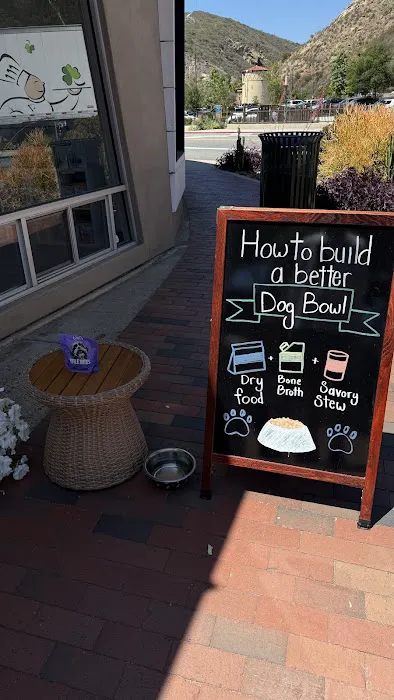 How to build
a better
Dog Bowl
Dry
food
+
Bone
Broth
+
Savory
Stew